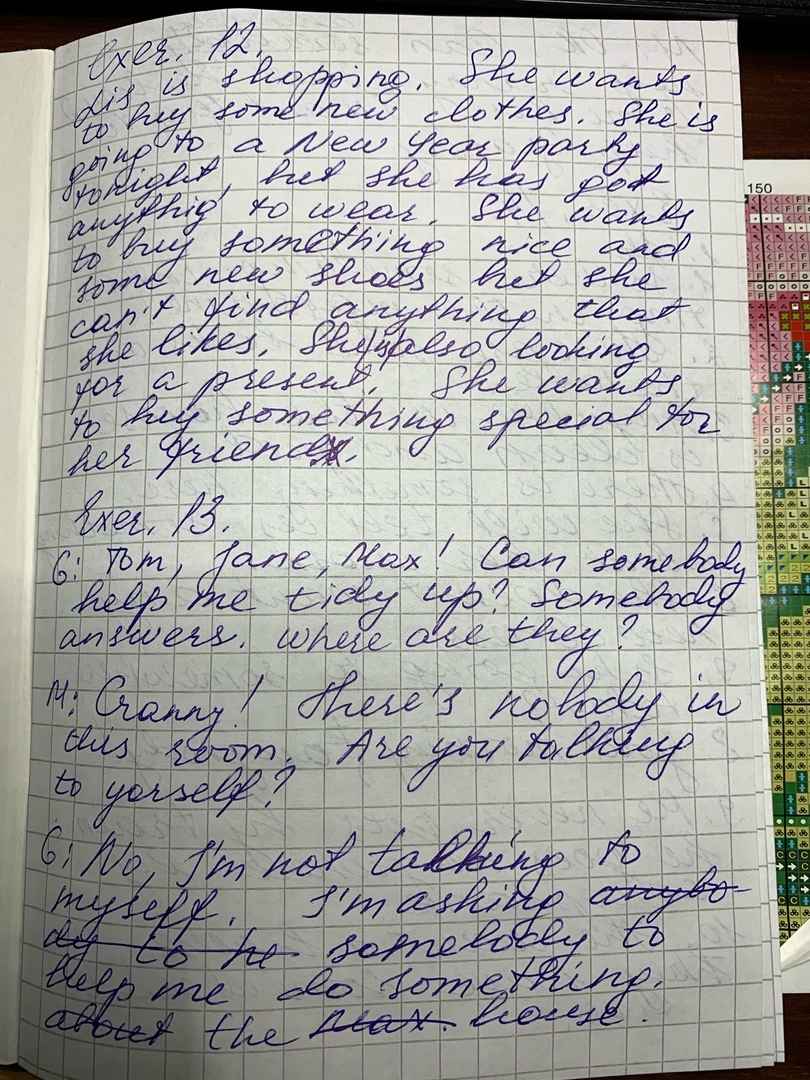 Exer. 12.
Lis is shopping. She wants
to buy some new clothes. She is
going to a New Year party
tonight, but she has got
anythig to wear. She wants
to buy something nice and
some new shoes but she
can't find anything that
she likes. She is also looking
for a present. She wants
to buy something special for
her friend.
Exer. 13.
G: Tom, Jane, Max! Can somebody
help me tidy up? Somebody
answers. Where are they?
M: Granny! There's nobody in
this room. Are you talking
to yorself?
G: No, I'm not talking to
myself. I'm asking anybo-
dy to he somebody to
help me do something.
about the Max. house.
150